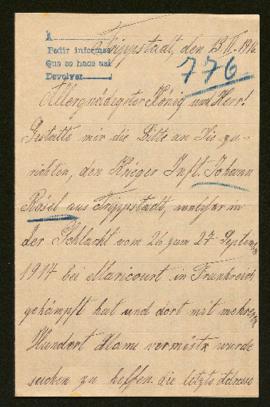 A
Pedir informes
Que se haga así
Devolver
Trippstadt, den 13. VI. 1916
776
Allergnädigster König und Herr!
Gestatte mir die Bitte an Sie zu
richten, den Krieger Inft. Johann
Rösel aus Trippstadt, welcher in
der Schlacht vom 26 zum 27. Septem
1914 bei Maricourt in Frankreich
gekämpft hat und dort mit mehreren
Hundert Mann vermißt wurde
suchen zu helfen, die letzte Adresse